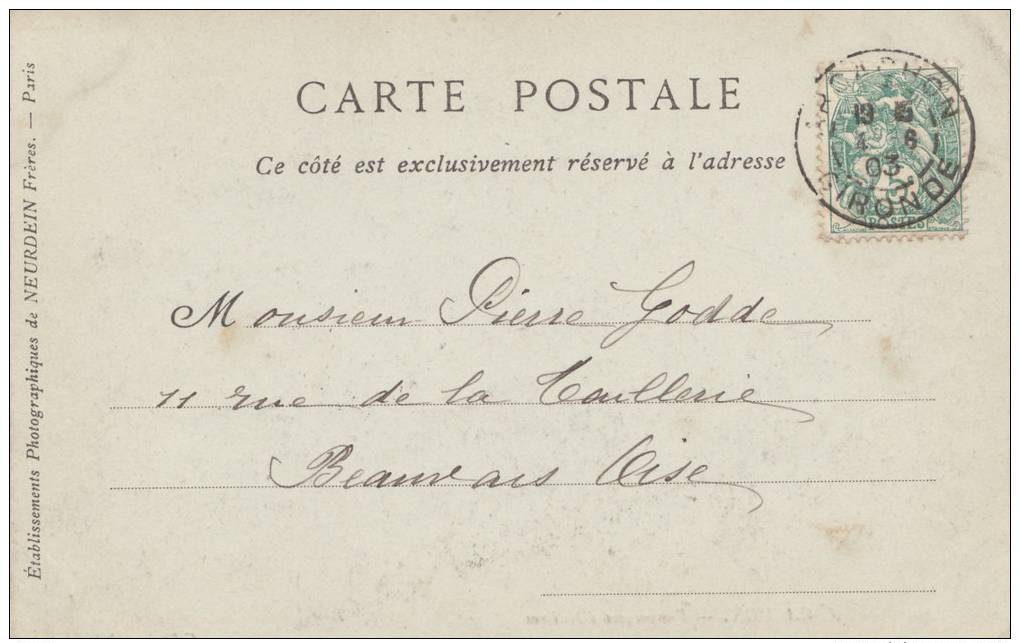 CARTE POSTALE
Ce côté est exclusivement réservé à l'adresse
ARCACHON
4 6
03
GIRONDE
5
POSTES
Monsieur Pierre Godde
11 rue de la Taillerie
Beauvais Oise
Établissements Photographiques de NEURDEIN Frères. — Paris